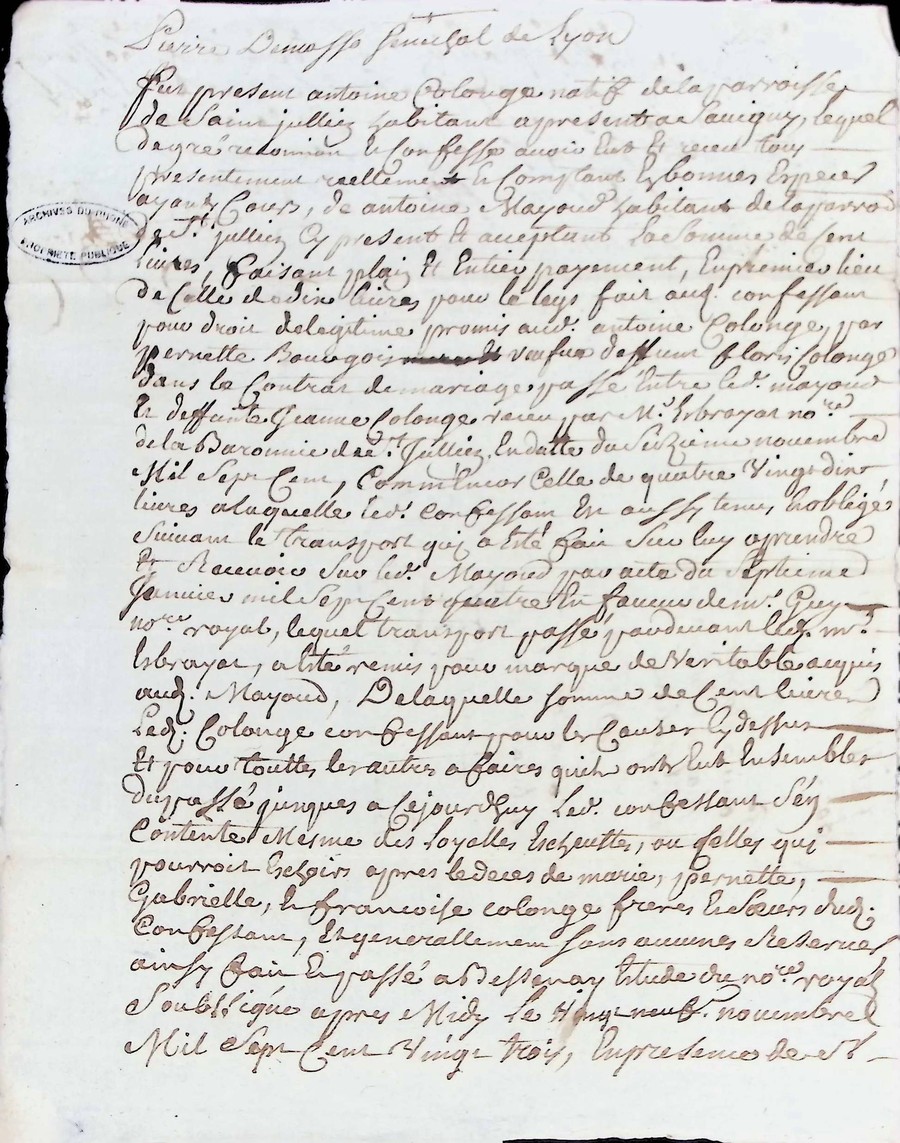 Pierre Demasso Senechal de Lyon
Fut present antoine Colonge natif de la parroisse
de Saint jullien habitant apresent a Savigny, lequel
de gré reconnon et Confesse avoir Eut et receu tout
présentement reellement et Comptant En bonnes Especes
ayant Cours, de antoine Mayoud habitant de la parroi
de St. jullien Cy present et acceptant la Somme de Cent
Livres, faisant plain et Entier payement, En premier lieu
de Celle de dix livres pour le legs fait aud. confessant
pour droit de legitime promis aud. antoine Colonge, par
pernette Bourgois veufue deffunt floris Colonge
dans le Contrat de mariage passé Entre led. mayoud
Et deffunte Jeanne Colonge receu par Mr. Esbrayat nore.
de la Baronnie de St. Jullien, En datte du Seizieme novembre
Mil Sept Cent, Comm'Encor Celle de quatre Vingt dix
livres a laquelle led. confessant En aussy tenu et obligé
Suivant le transport quy a Esté fait Sur luy a prendre
Et Recevoir Sur led. Mayoud par acte du Septieme
Janvier mil Sept Cent quatre En faveur de mr. Guy
nore. royal, lequel transport passé pardevant led. mr.
Esbrayat, a Esté remis pour marque de Veritable acquis
aud. Mayoud, De laquelle somme de Cent livres
Led. Colonge confessant pour les Causes Cy dessus
Et pour touttes les autres afaires quils ont Eut Ensembles
du passé jusques a Cejourd'huy Led. confessant S'en
Contente Mesme des Loyelles Escheuttes, ou Celles qui
pourroit Escheoirs apres le deces de marie, pernette,
Gabrielle, et francoise colonge freres Et Sœurs dud.
Confessant, Et generallement sans aucunes Reserves
ainsy fait Et passé a Bessenay Estude du nore. royal
Soubsigné apres Midy Le Vingt neufe. novembre
Mil Sept Cent Vingt trois, En presence de Sr.
ARCHIVES DU RHÔNE
PROPRIÉTÉ PUBLIQUE